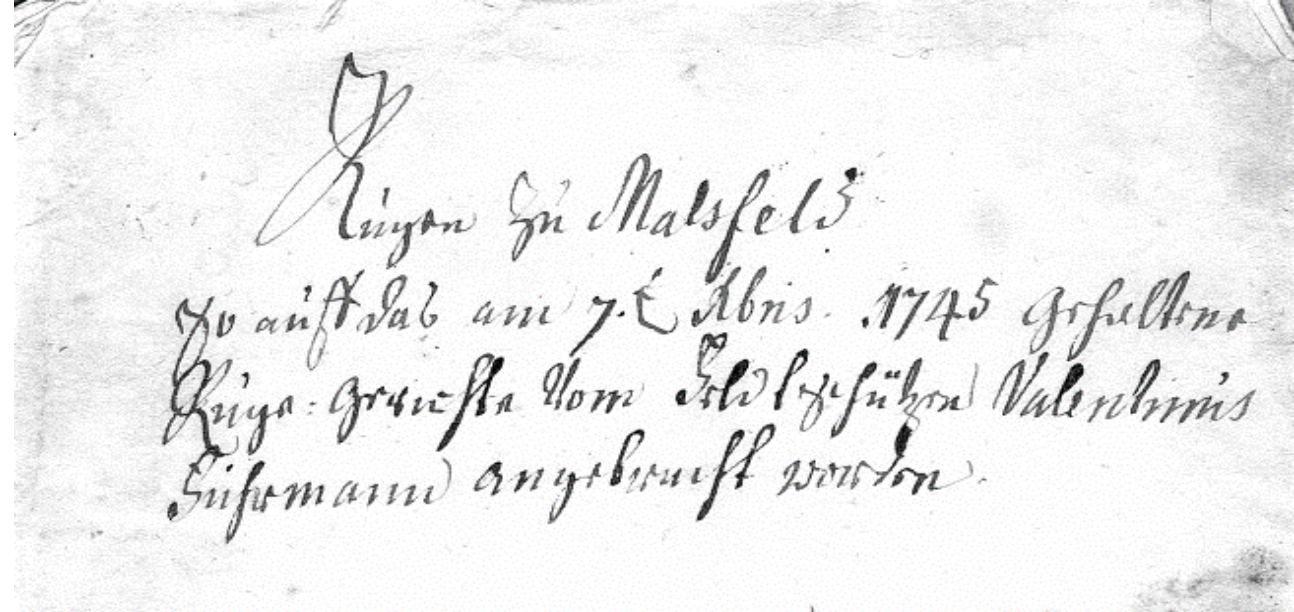 Rügen zu Malsfeld
so auff das am 7.t Xbris. 1745 gehaltene
Rüge-gerichte vom Feldtschützen Valentinus
Fuhrmann angebracht worden.